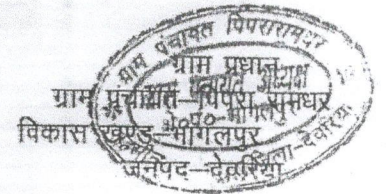 ग्राम पंचायत पिपरारामधर
ग्राम प्रधान
ग्राम पंचायत–पिपरा रामधर
विकास खण्ड–भागलपुर
जनपद–देवरिया
जिला-देवरिया